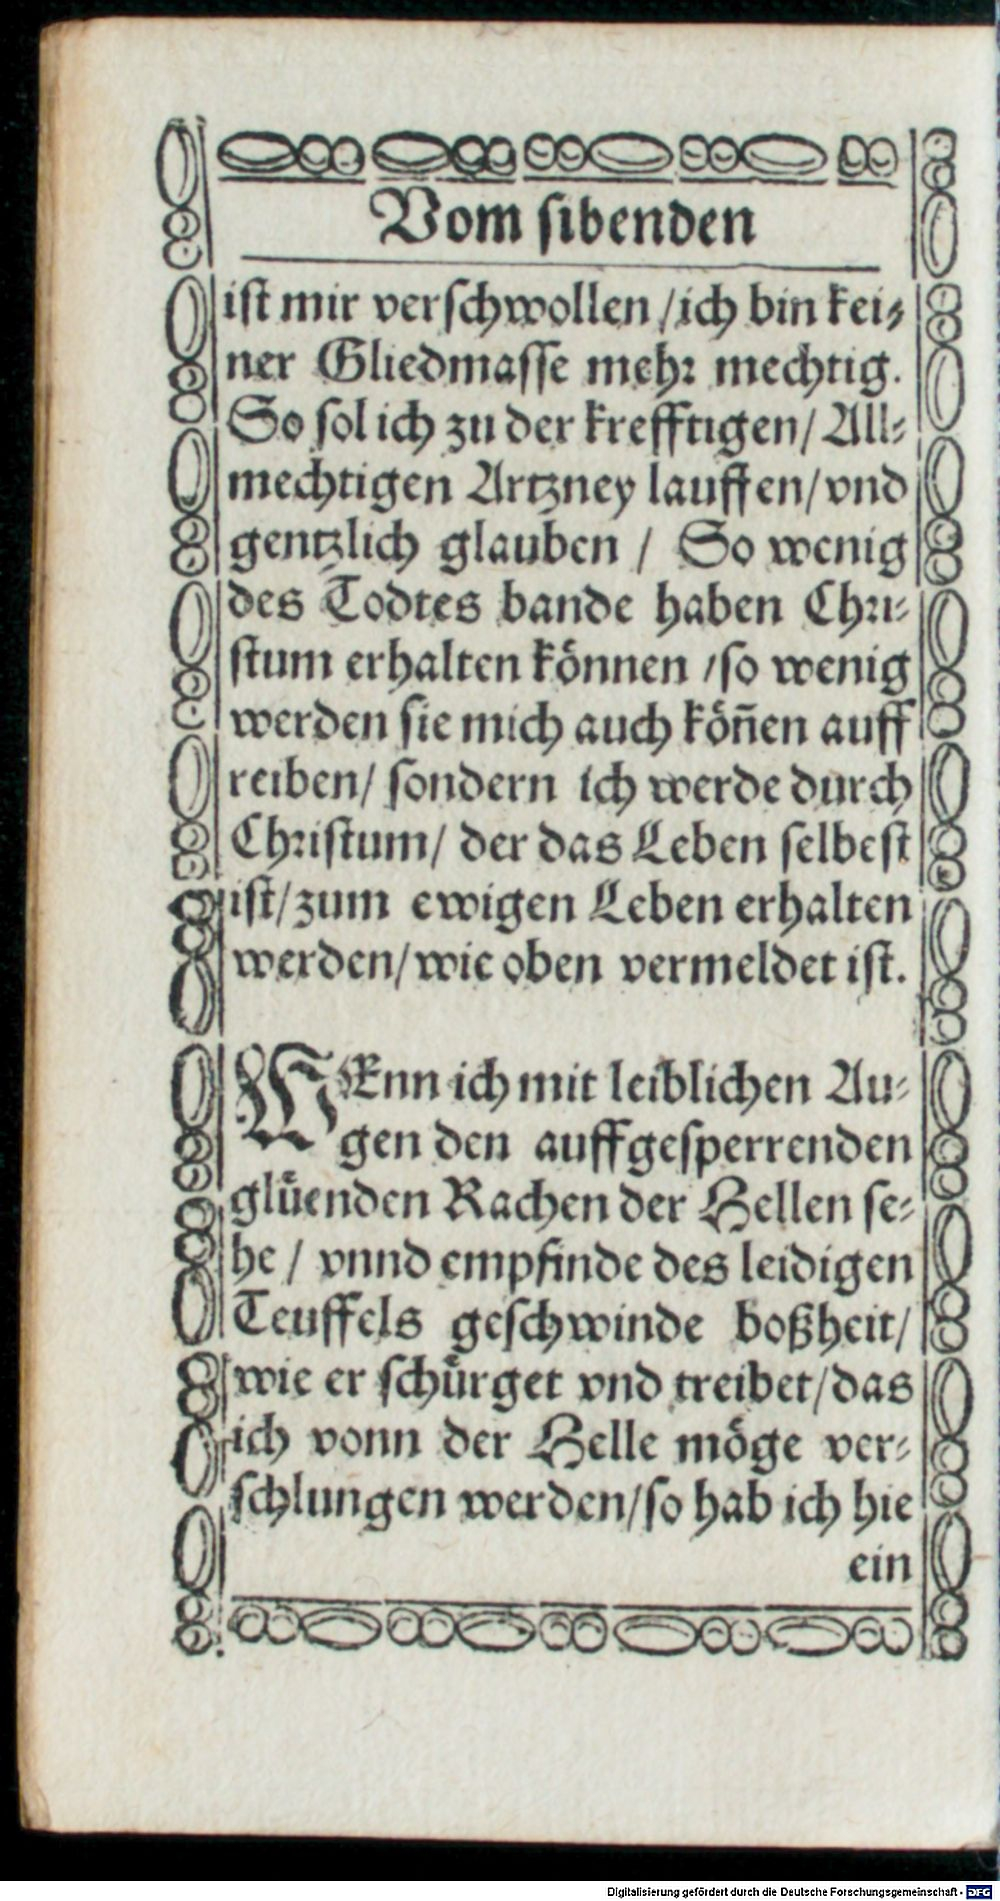 Vom sibenden
ist mir verschwollen / ich bin kei⸗
ner Gliedmasse mehr mechtig.
So sol ich zu der krefftigen / All⸗
mechtigen Artzney lauffen / vnd
gentzlich glauben / So wenig
des Todtes bande haben Chri⸗
stum erhalten können / so wenig
werden sie mich auch köñen auff
reiben / sondern ich werde durch
Christum / der das Leben selbest
ist / zum ewigen Leben erhalten
werden / wie oben vermeldet ist.
WEnn ich mit leiblichen Au⸗
gen den auffgesperrenden
glüenden Rachen der Hellen se⸗
he / vnnd empfinde des leidigen
Teuffels geschwinde boßheit /
wie er schürget vnd treibet / das
ich vonn der Helle möge ver⸗
schlungen werden / so hab ich hie
ein
Digitalisierung gefördert durch die Deutsche Forschungsgemeinschaft - DFG